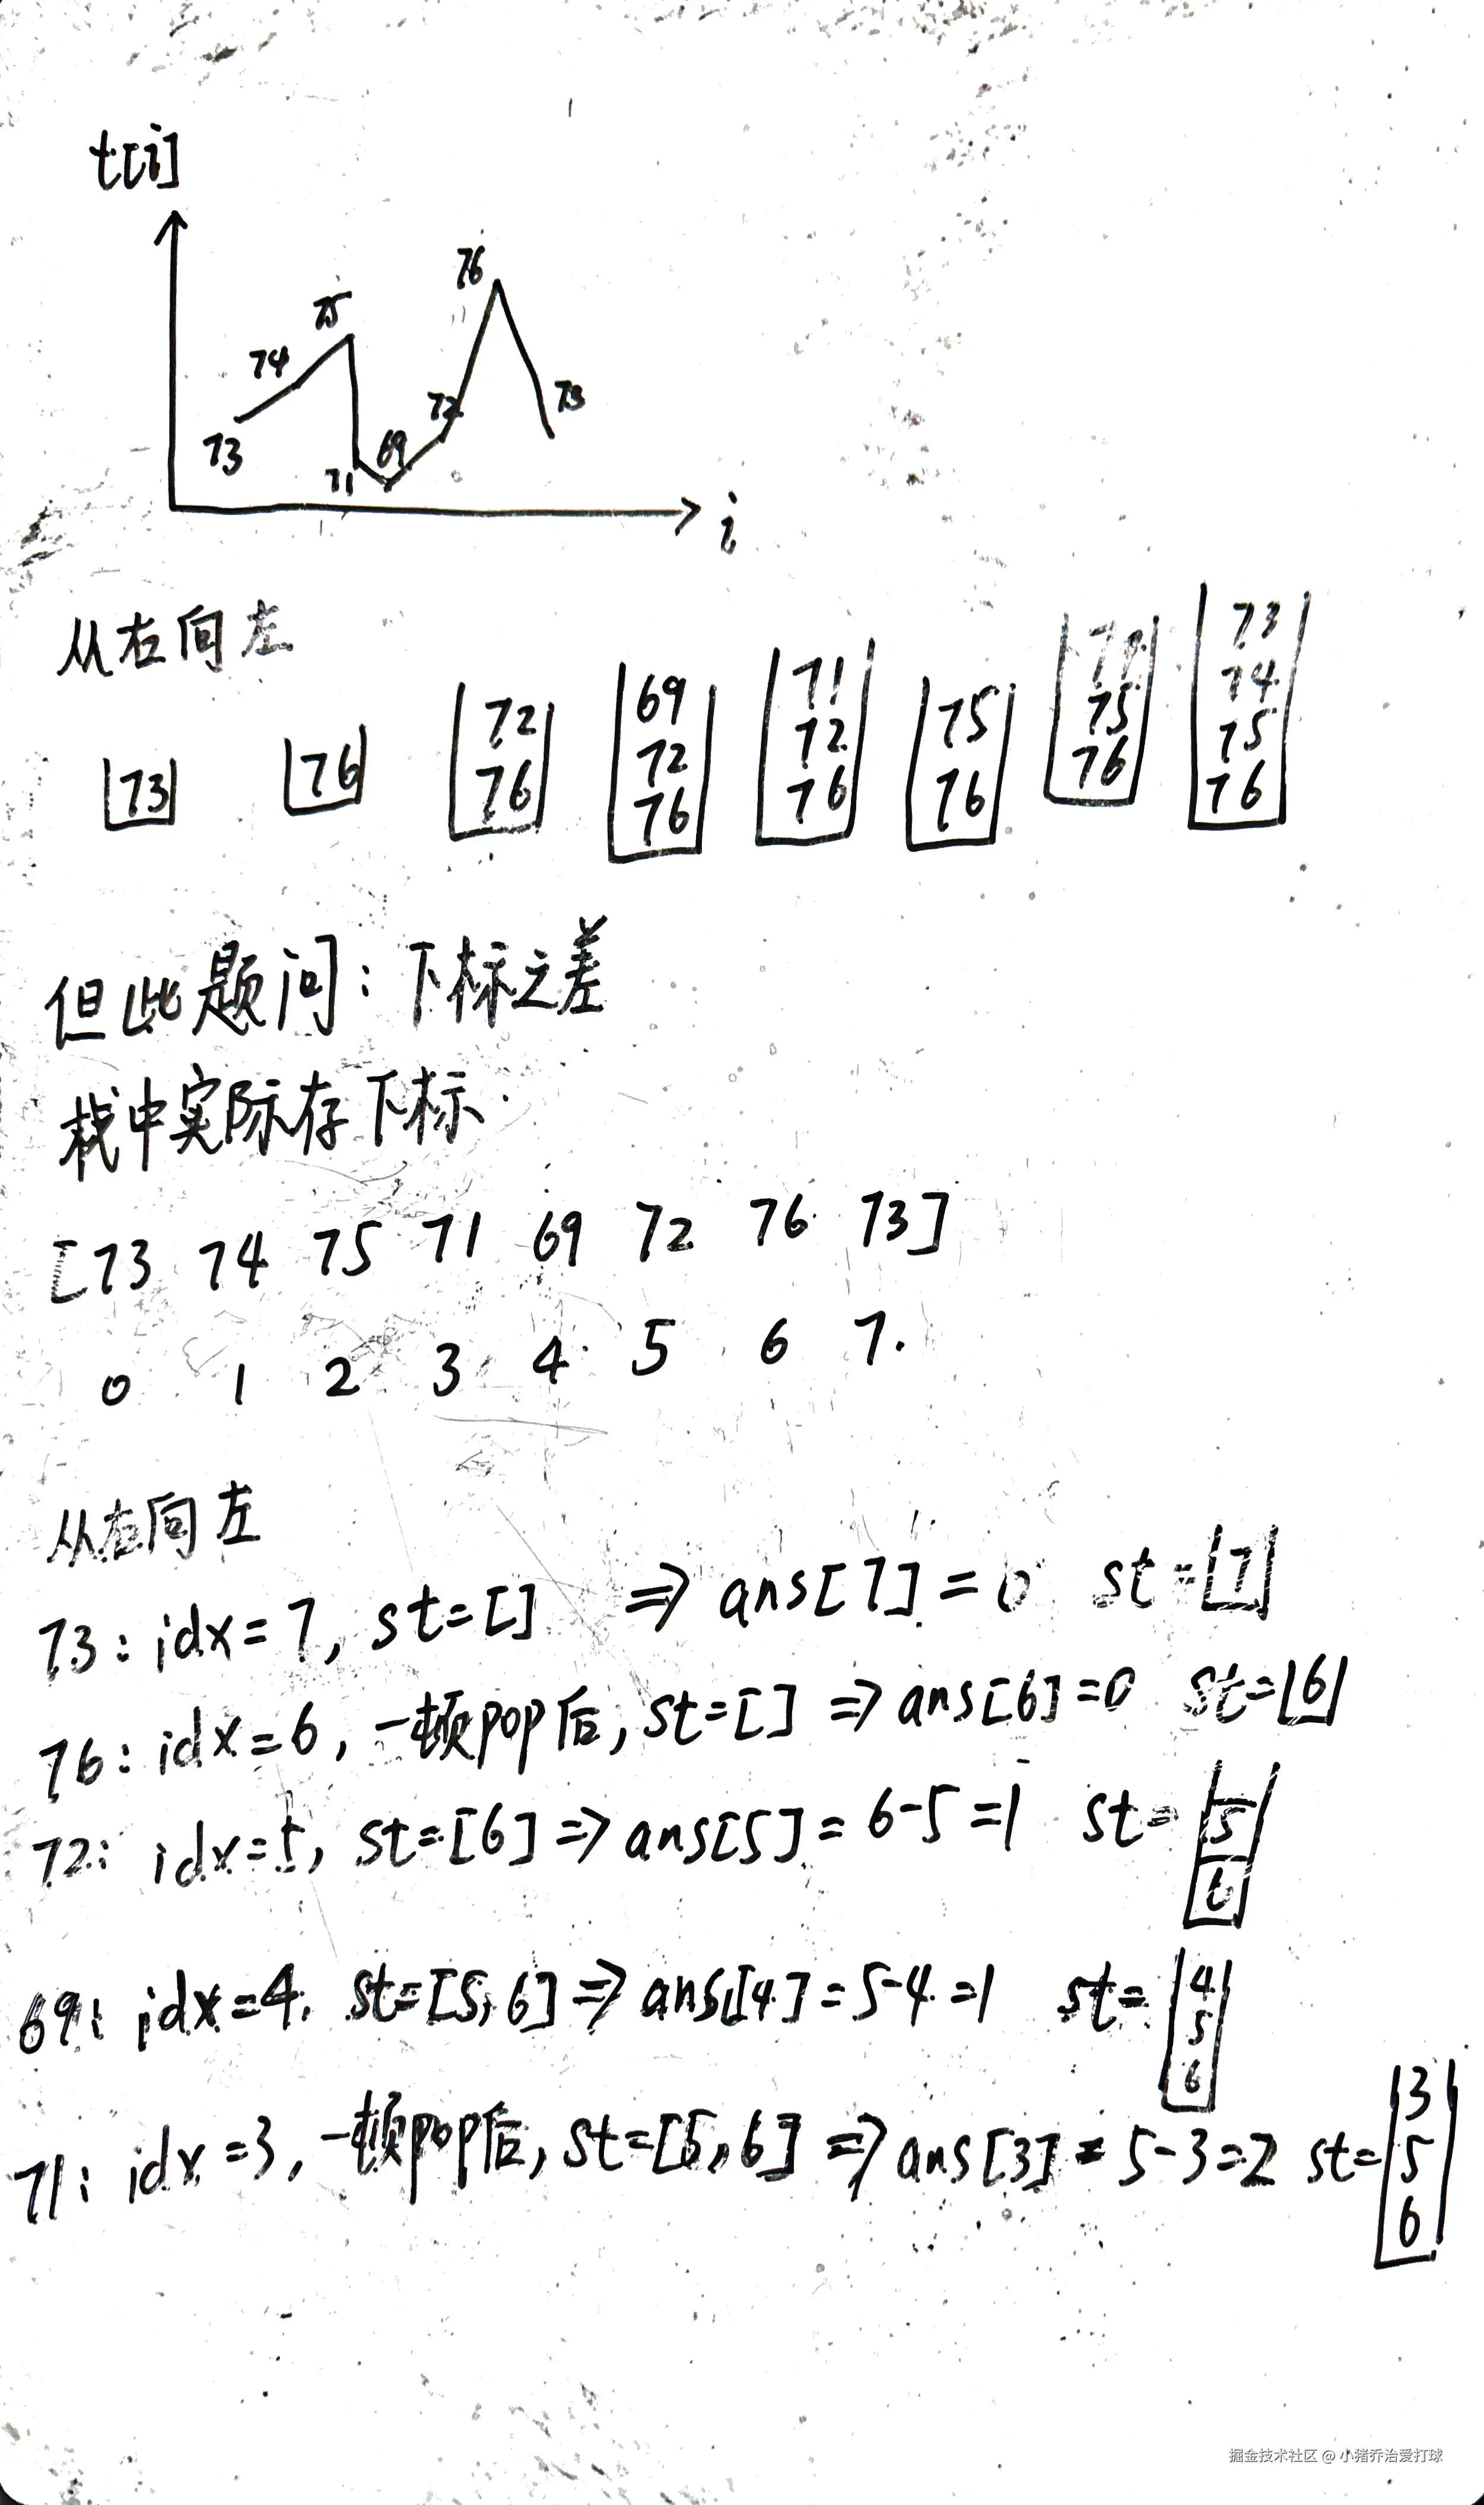 t[i]
76
75
74
73
72
69
73
71
i
从右向左
73
74
75
76
71
72
76
69
72
76
72
76
75
76
75
76
73
76
但此题问：下标之差
栈中实际存下标
[73 74 75 71 69 72 76 73]
0 1 2 3 4 5 6 7.
从右向左
73: idx=7, st=[] => ans[7]=0 st=[7]
76: idx=6, 一顿pop后, st=[] => ans[6]=0 st=[6]
72: idx=5, st=[6] => ans[5]=6-5=1 st=
5
6
69: idx=4, st=[5,6] => ans[4]=5-4=1 st=
4
5
6
71: idx=3, 一顿pop后, st=[5,6] => ans[3]=5-3=2 st=
3
5
6
掘金技术社区 @ 小猪乔治爱打球